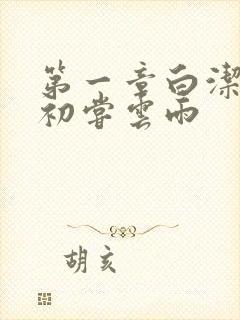 第一章白潔
初嘗雲雨
胡亥